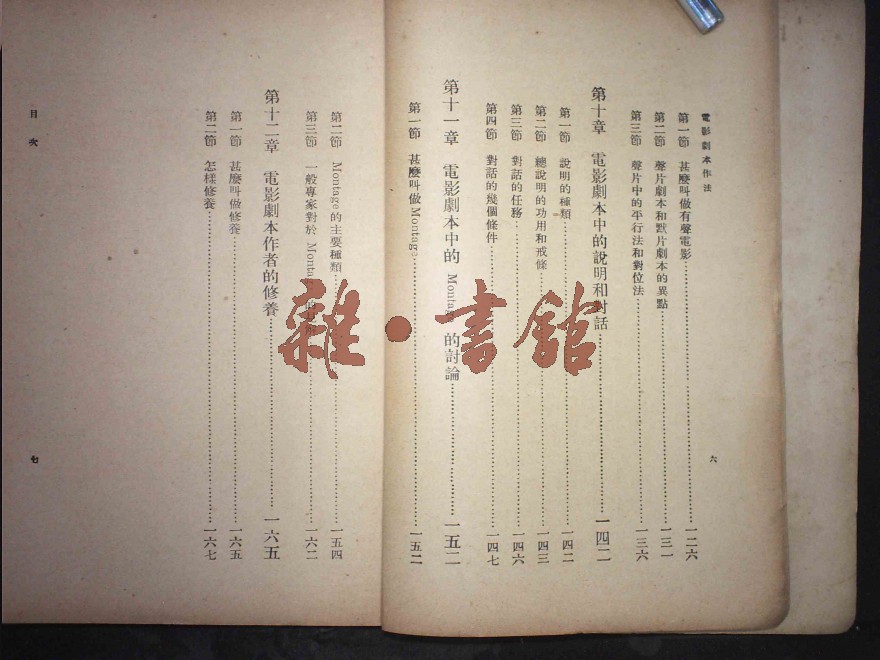 電影劇本作法
第一節 甚麼叫做有聲電影……一二六
第二節 聲片劇本和默片劇本的異點……一三一
第三節 聲片中的平行法和對位法……一三六
第十章 電影劇本中的說明和對話……一四二
第一節 說明的種類……一四二
第二節 總說明的功用和戒條……一四三
第三節 對話的任務……一四六
第四節 對話的幾個條件……一四七
第十一章 電影劇本中的 Montage 的討論……一五二
第一節 甚麼叫做Montage……一五二
六
第二節 Montage的主要種類……一五四
第三節 一般專家對於 Montage……一六二
第十二章 電影劇本作者的修養……一六五
第一節 甚麼叫做修養……一六五
第二節 怎樣修養……一六七
目次
七
雜·書館